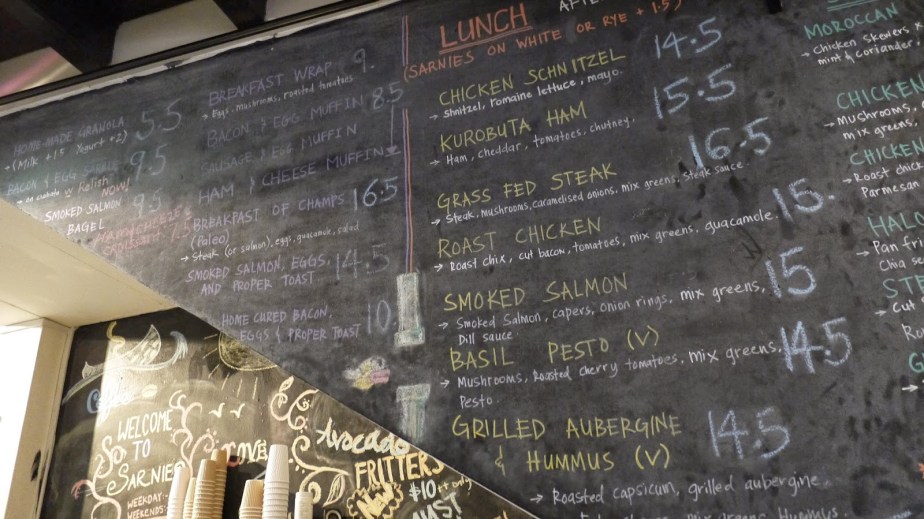 HOME-MADE GRANOLA 5.5
(Milk +1.5 Yogurt +2)
BACON & EGG 9.5
w Relish
NOW!
SMOKED SALMON 9.5
BAGEL
BREAKFAST WRAP 9.
→ Eggs, mushrooms, roasted tomatoes
BACON & EGG MUFFIN 8.5
SAUSAGE & EGG MUFFIN
HAM & CHEESE MUFFIN
BREAKFAST OF CHAMPS 16.5
(Paleo)
→ Steak (or salmon), eggs, guacamole, salad
SMOKED SALMON, EGGS, 14.5
AND PROPER TOAST
HOME CURED BACON, 10
EGGS & PROPER TOAST
LUNCH
(SARNIES ON WHITE OR RYE + 1.5)
CHICKEN SCHNITZEL 14.5
→ Shnitzel, romaine lettuce, mayo.
KUROBUTA HAM 15.5
→ Ham, cheddar, tomatoes, chutney.
GRASS FED STEAK 16.5
→ Steak, mushrooms, caramelised onions, mix greens, steak sauce.
ROAST CHICKEN 15.
→ Roast chix, cut bacon, tomatoes, mix greens, guacamole.
SMOKED SALMON 15
→ Smoked Salmon, capers, onion rings, mix greens,
Dill sauce
BASIL PESTO (V) 14.5
→ Mushrooms, Roasted cherry tomatoes, mix greens,
Pesto
GRILLED AUBERGINE 14.5
& HUMMUS (V)
→ Roasted capsicum, grilled aubergine,
mix greens, Hummus.
MOROCCAN
→ Chicken skewers,
mint & coriander
CHICKEN
→ Mushrooms,
mix greens,
CHICKEN
→ Roast chick
Parmesan
HAL
→ Pan f
Chia se
STE
→ Cu
Ro
WELCOME
TO
SARNIE
WEEKDAY
WEEKENDS
Avocado
FRITTERS
Now
$10++ only